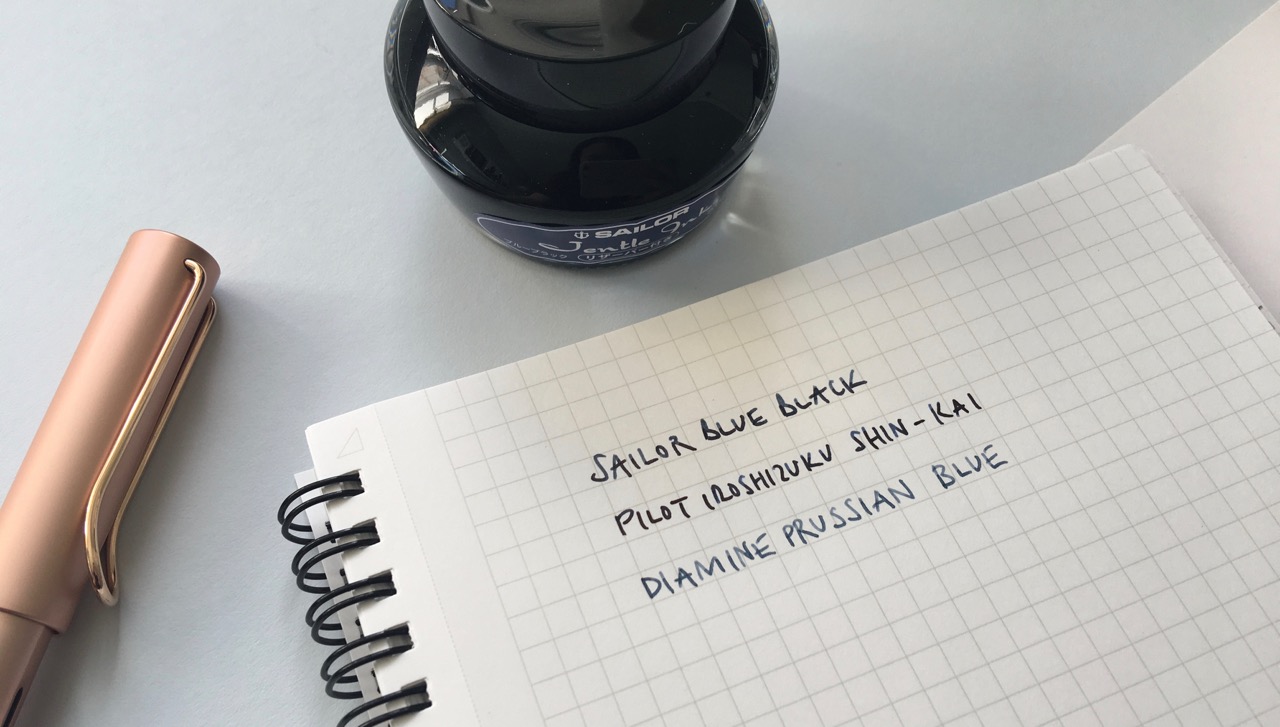 SAILOR
Jentle Ink
ブルーブラック (リザーバー付き)
SAILOR BLUE BLACK
PILOT IROSHIZUKU SHIN-KAI
DIAMINE PRUSSIAN BLUE